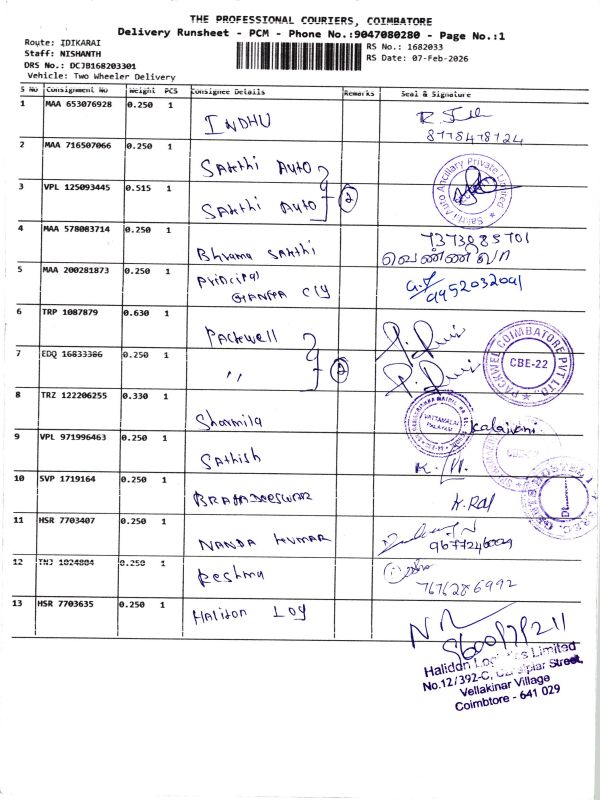 THE PROFESSIONAL COURIERS, COIMBATORE
Delivery Runsheet - PCM - Phone No.:9047080280 - Page No.:1
Route: IDIKARAI
Staff: NISHANTH
DRS No.: DCJB168203301
Vehicle: Two Wheeler Delivery
RS No.: 1682033
RS Date: 07-Feb-2026
S No Consignment No Weight PCS Consignee Details Remarks Seal & Signature
1 MAA 653076928 0.250 1 INDHU
8778478724
2 MAA 716507066 0.250 1 Sakthi Auto
3 VPL 125093445 0.515 1 Sakthi Auto 2
Sakthi Auto Ancillary Private Limited
4 MAA 578083714 0.250 1 Bhrama Sakthi 7373085701
வெண்ணிலா
5 MAA 200281873 0.250 1 Principal
City 9952032091
6 TRP 1087879 0.630 1 Packwell
7 EDQ 16833386 0.250 1 ,, 2
PACKWEL COIMBATORE PVT LTD.,
CBE-22
8 TRZ 122206255 0.330 1 Sharmila Kalaivani
9 VPL 971996463 0.250 1 Sathish
10 SVP 1719164 0.250 1 BRAHADEESWAR
11 HSR 7703407 0.250 1 NANDA KUMAR
9677246009
12 TNJ 1024804 0.250 1 Reshma
7676286992
13 HSR 7703635 0.250 1 Halidon Log
Halidon Logistics Limited
No.12/392-C, Street,
Vellakinar Village
Coimbtore - 641 029